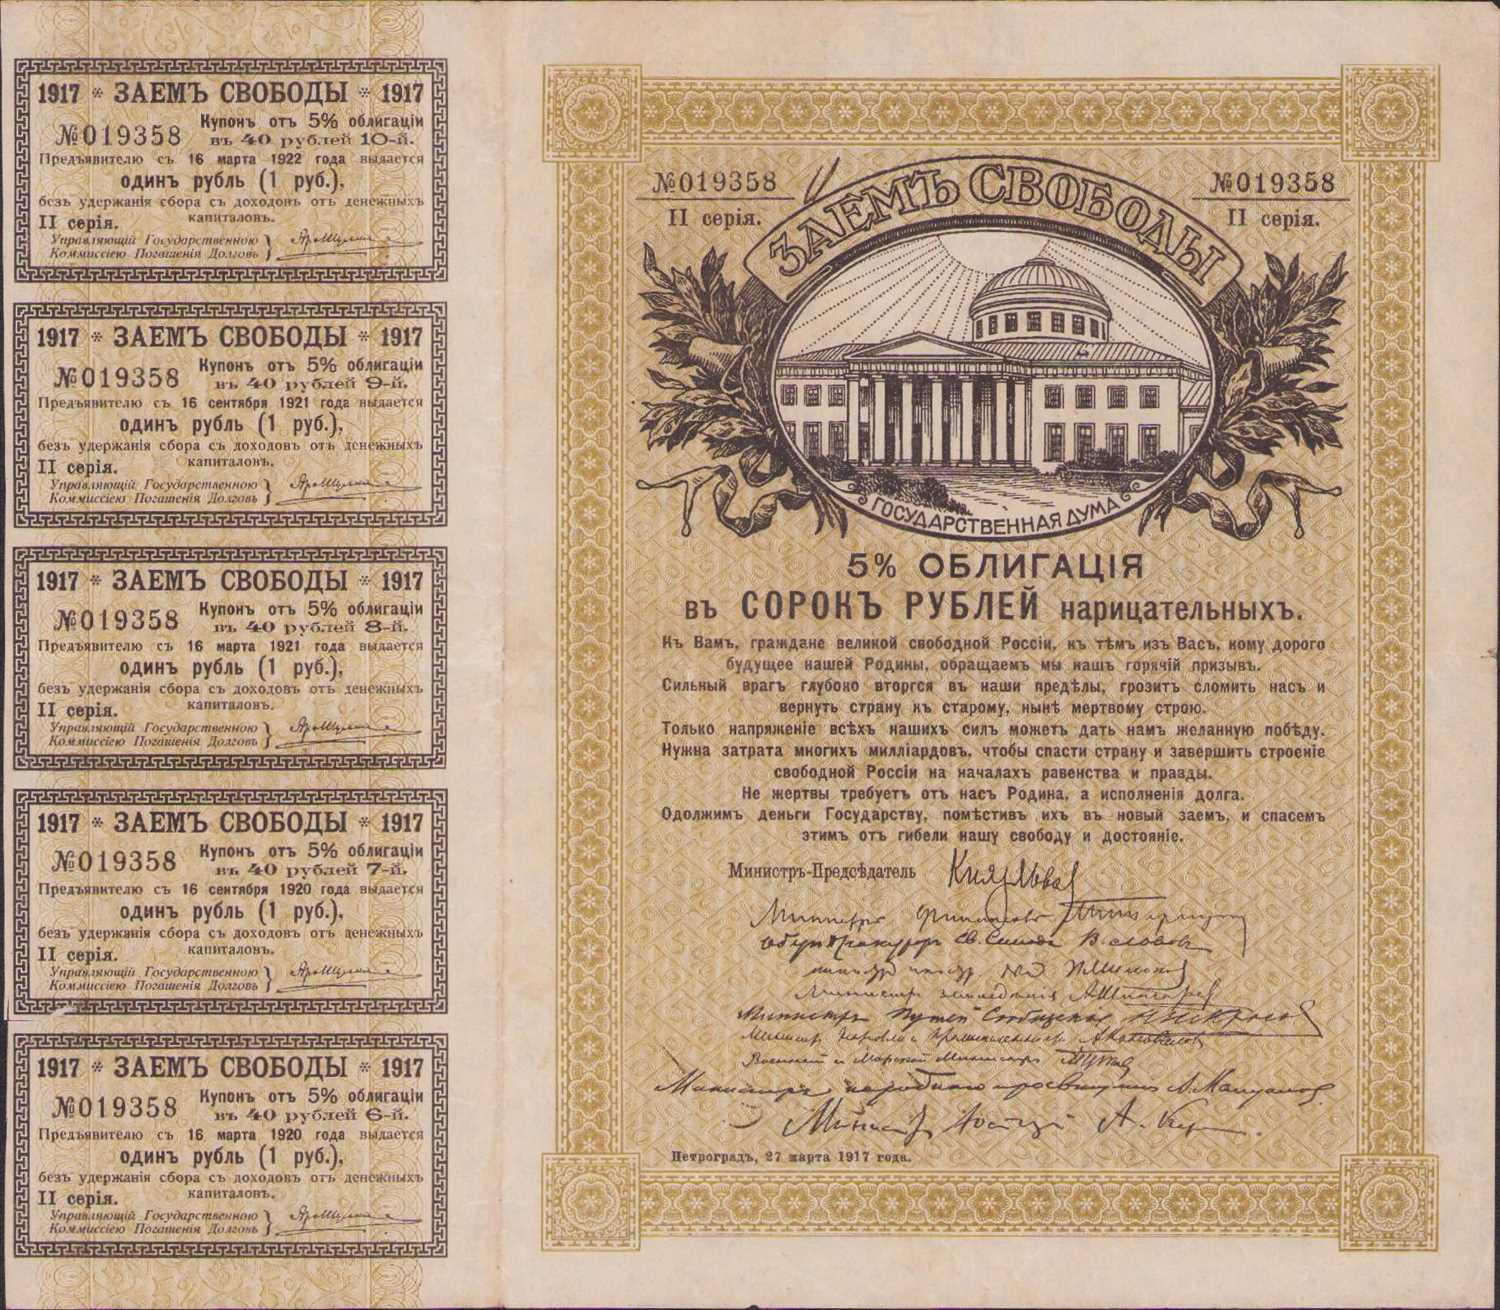 1917 * ЗАЕМЪ СВОБОДЫ * 1917
№019358
Купонъ отъ 5% облигаціи
въ 40 рублей 10-й.
Предъявителю съ 16 марта 1922 года выдается
одинъ рубль (1 руб.),
безъ удержанія сбора съ доходовъ отъ денежныхъ
капиталовъ.
II серія.
Управляющій Государственною
Коммиссіею Погашенія Долговъ
1917 * ЗАЕМЪ СВОБОДЫ * 1917
№019358
Купонъ отъ 5% облигаціи
въ 40 рублей 9-й.
Предъявителю съ 16 сентября 1921 года выдается
одинъ рубль (1 руб.),
безъ удержанія сбора съ доходовъ отъ денежныхъ
капиталовъ.
II серія.
Управляющій Государственною
Коммиссіею Погашенія Долговъ
1917 * ЗАЕМЪ СВОБОДЫ * 1917
№019358
Купонъ отъ 5% облигаціи
въ 40 рублей 8-й.
Предъявителю съ 16 марта 1921 года выдается
одинъ рубль (1 руб.),
безъ удержанія сбора съ доходовъ отъ денежныхъ
капиталовъ.
II серія.
Управляющій Государственною
Коммиссіею Погашенія Долговъ
1917 * ЗАЕМЪ СВОБОДЫ * 1917
№019358
Купонъ отъ 5% облигаціи
въ 40 рублей 7-й.
Предъявителю съ 16 сентября 1920 года выдается
одинъ рубль (1 руб.),
безъ удержанія сбора съ доходовъ отъ денежныхъ
капиталовъ.
II серія.
Управляющій Государственною
Коммиссіею Погашенія Долговъ
1917 * ЗАЕМЪ СВОБОДЫ * 1917
№019358
Купонъ отъ 5% облигаціи
въ 40 рублей 6-й.
Предъявителю съ 16 марта 1920 года выдается
одинъ рубль (1 руб.),
безъ удержанія сбора съ доходовъ отъ денежныхъ
капиталовъ.
II серія.
Управляющій Государственною
Коммиссіею Погашенія Долговъ
№019358
II серія.
ЗАЕМЪ СВОБОДЫ
№019358
II серія.
ГОСУДАРСТВЕННАЯ ДУМА
5% ОБЛИГАЦІЯ
въ СОРОКЪ РУБЛЕЙ нарицательныхъ.
Къ Вамъ, граждане великой свободной Россіи, къ тѣмъ изъ Васъ, кому дорого
будущее нашей Родины, обращаемъ мы нашъ горячій призывъ.
Сильный врагъ глубоко вторгся въ наши предѣлы, грозитъ сломить насъ и
вернуть страну къ старому, нынѣ мертвому строю.
Только напряженіе всѣхъ нашихъ силъ можетъ дать намъ желанную побѣду.
Нужна затрата многихъ милліардовъ, чтобы спасти страну и завершить строеніе
свободной Россіи на началахъ равенства и правды.
Не жертвы требуетъ отъ насъ Родина, а исполненія долга.
Одолжимъ деньги Государству, помѣстивъ ихъ въ новый заемъ, и спасемъ
этимъ отъ гибели нашу свободу и достояніе.
Министръ-Предсѣдатель Князь Львов
Министръ финансовъ
Оберъ Прокуроръ Св. Синода В. Львовъ
Министр земледѣлія А Шингаревъ
Министръ Путей Сообщенія Н Некрасовъ
Министр Торговли и Промышленности А Коновалов
Военный и Морской Министръ
Министръ народнаго просвѣщенія А. Мануиловъ
Министр Юстиціи А. Кер
Петроградъ, 27 марта 1917 года.